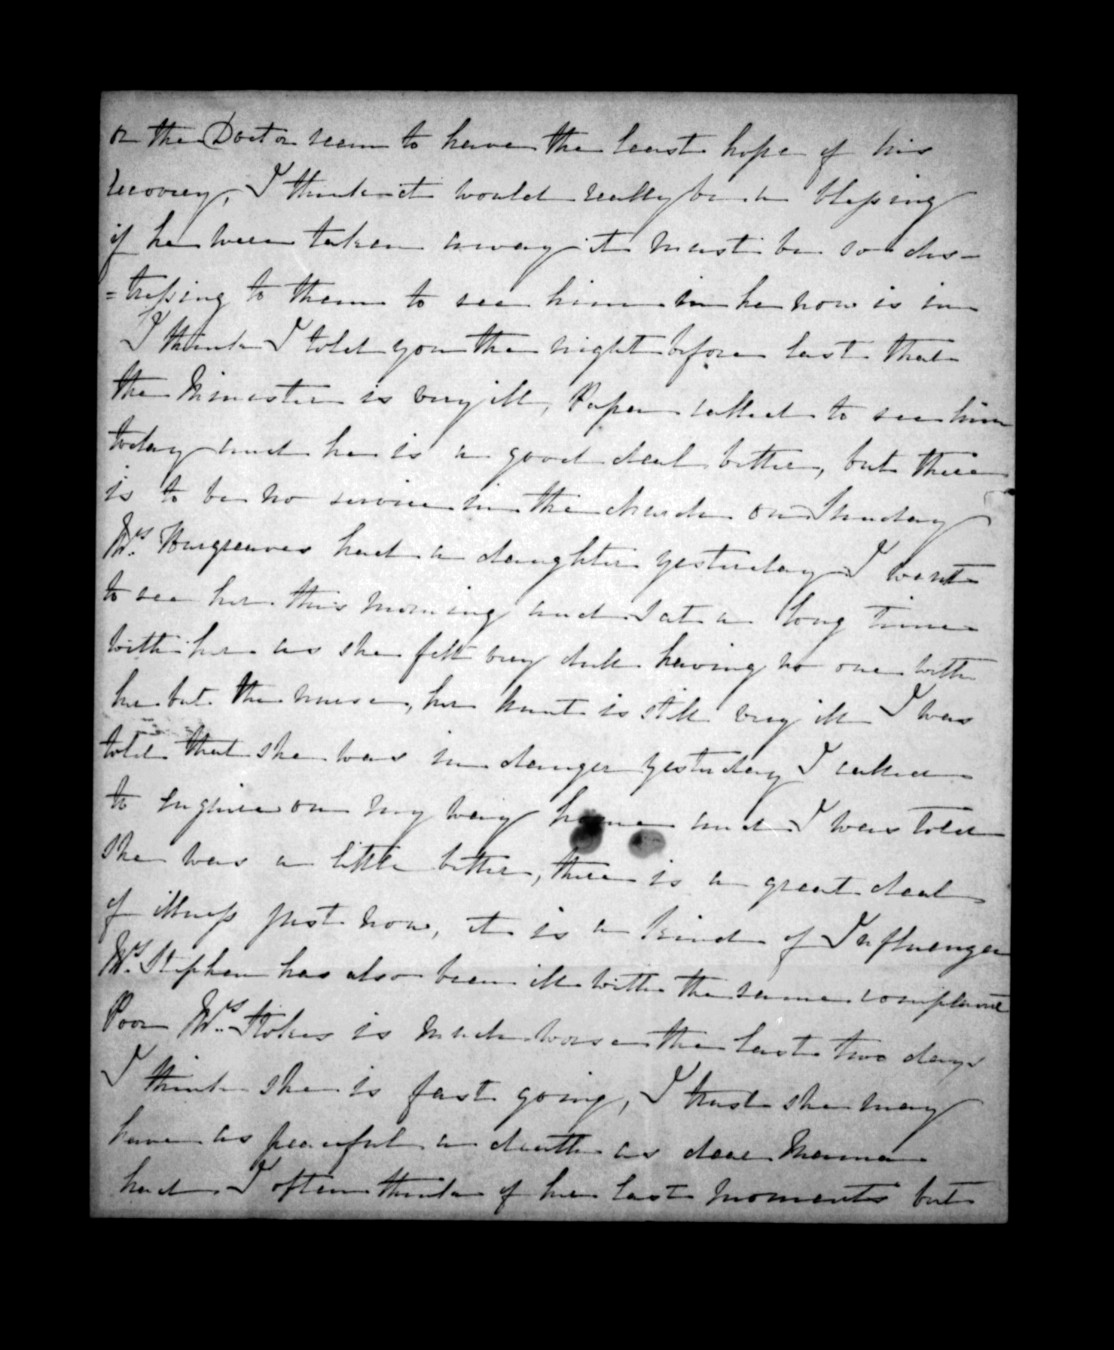 or the Doctor seem to have the least hope of his
recovery, I think it would really be a blessing
if he were taken away it must be so dis-
=tressing to them to see him in he now is in
I think I told you the night before last that
the Minister is very ill, Papa called to see him
today and he is a good deal better, but there
is to be no service in the church on Sunday
Mrs. Hargreaves had a daughter yesterday I went
to see her this morning and sat a long time
with her as she felt very dull having no one with
her but the nurse, her Aunt is still very ill I was
told that she was in danger yesterday I called
to enquire on my way home and I was told
she was a little better, there is a great deal
of illness just now, it is a kind of Influenza
Mrs. Stephen has also been ill with the same complaint
Poor Mrs. Stokes is much worse the last two days
I think she is fast going, I trust she may
have as peaceful a death as dear Mama
had I often think of her last moments but